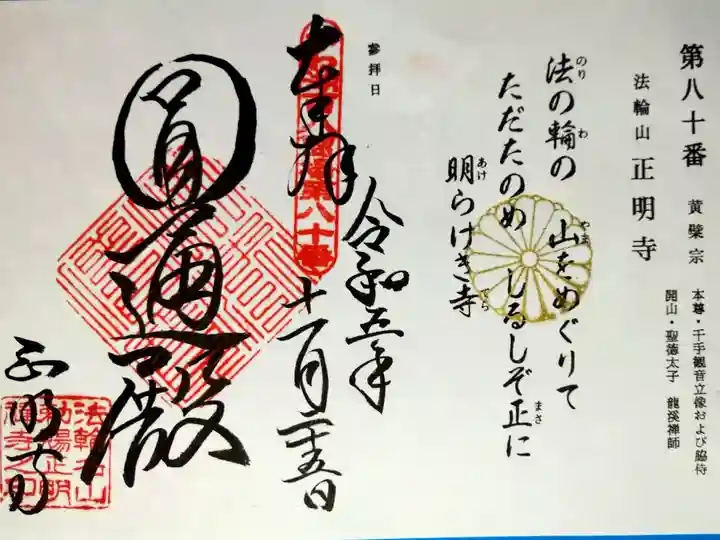 第八十番 黄檗宗 本尊・千手観音立像および脇侍
開山・聖徳太子 龍溪禅師
法輪山 正明寺
法の輪の 山をめぐりて
のり わ やま
ただたのめ しるしぞ正に
まさ
明らけき寺
あけ でら
參拝日
奉拝
令和五年
十一月二十五日
第八十番
圓通殿
正明寺
法輪山
勅賜正明
禅寺之印